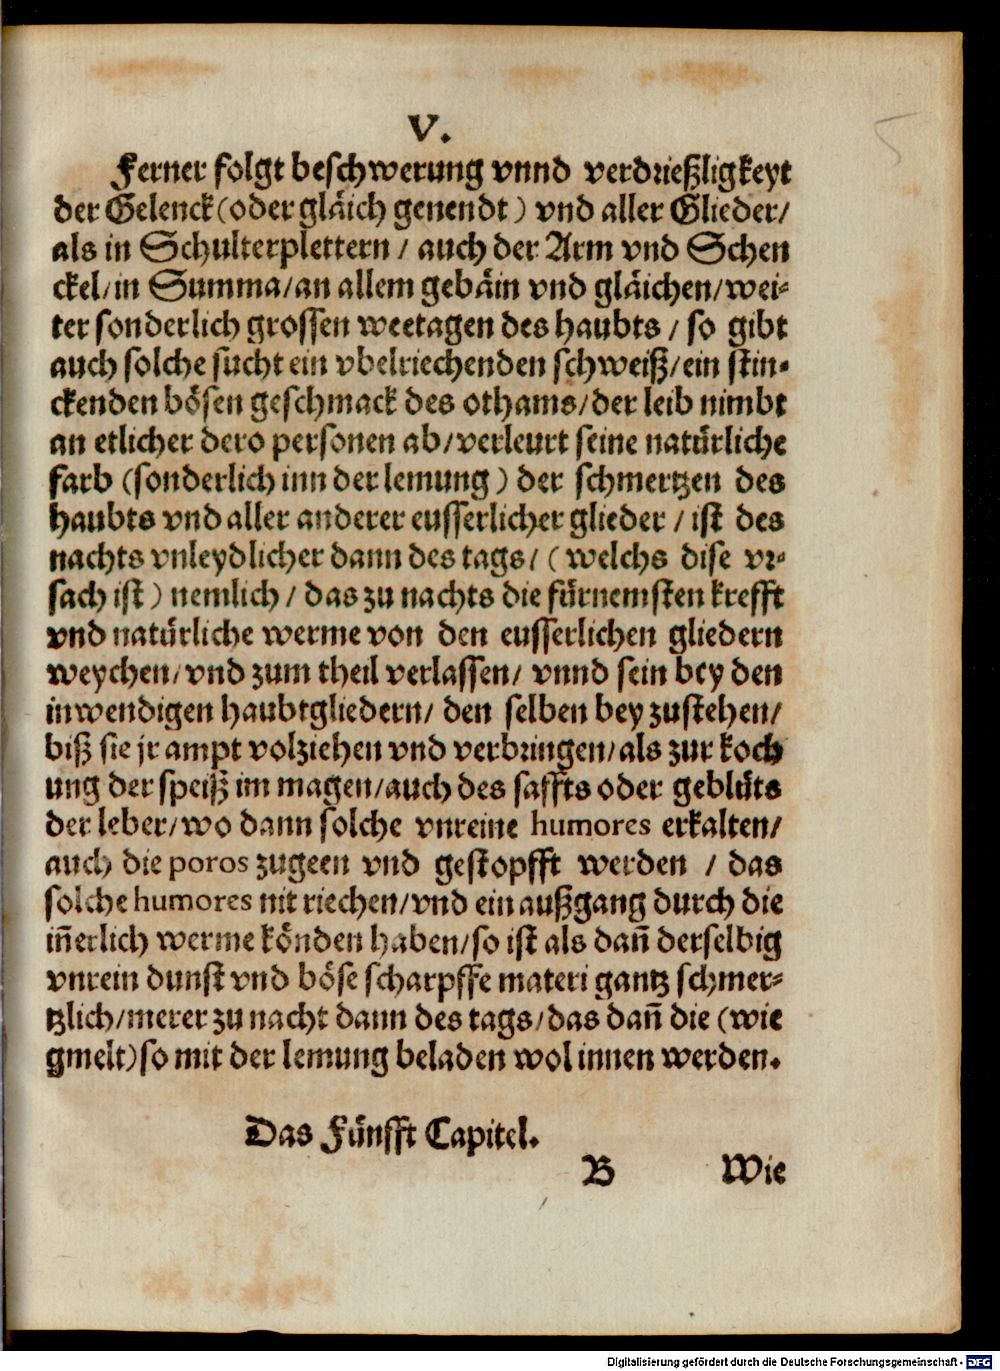 V.
5
Ferner folgt beschwerung vnnd verdrießligkeyt
der Gelenck (oder gläich genendt) vnd aller Glieder/
als in Schulterplettern / auch der Arm vnd Schen
ckel/in Summa/an allem gebäin vnd gläichen/wei-
ter sonderlich grossen weetagen des haubts / so gibt
auch solche sucht ein vbelriechenden schweiß/ein stin-
ckenden bösen geschmack des othams/der leib nimbt
an etlicher dero personen ab/verleurt seine natürliche
farb (sonderlich inn der lemung) der schmertzen des
haubts vnd aller anderer eusserlicher glieder / ist des
nachts vnleydlicher dann des tags/ (welchs dise vr-
sach ist) nemlich / das zu nachts die fürnemsten krefft
vnd natürliche werme von den eusserlichen gliedern
weychen/vnd zum theil verlassen/ vnnd sein bey den
inwendigen haubtgliedern/ den selben bey zustehen/
biß sie jr ampt volziehen vnd verbringen/als zur koch
ung der speiß im magen/auch des saffts oder geblüts
der leber/wo dann solche vnreine humores erkalten/
auch die poros zugeen vnd gestopfft werden / das
solche humores nit riechen/vnd ein außgang durch die
iñerlich werme könden haben/so ist als dañ derselbig
vnrein dunst vnd böse scharpffe materi gantz schmer-
tzlich/merer zu nacht dann des tags/das dañ die (wie
gmelt) so mit der lemung beladen wol innen werden.
Das Fünfft Capitel.
B Wie
Digitalisierung gefördert durch die Deutsche Forschungsgemeinschaft - DFG